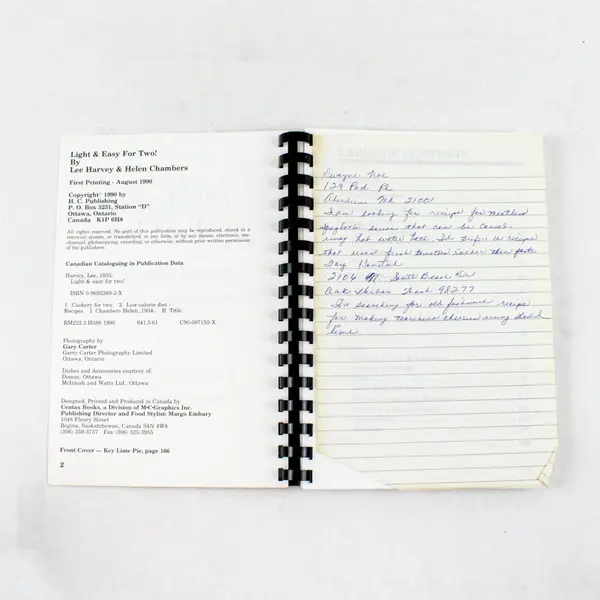 Light & Easy For Two!
By
Lee Harvey & Helen Chambers
First Printing - August 1990
Copyright© 1990 by
H. C. Publishing
P. O. Box 3231, Station "D"
Ottawa, Ontario
Canada K1P 6H8
All rights reserved. No part of this publication may be reproduced, stored in a
retrieval system, or transmitted, in any form, or by any means, electronic, me-
chanical, photocopying, recording, or otherwise, without prior written permission
of the publishers.
Canadian Cataloguing in Publication Data
Harvey, Lee, 1935-
Light & easy for two!
ISBN 0-9692369-3-X
1 Cookery for two. 2. Low-calorie diet -
Recipes. I Chambers Helen, 1934-. II Title.
RM222.2 H388 1990 641.5/61 C90-097155-X
Photography by
Gary Carter
Garry Carter Photography Limited
Ottawa, Ontario
Dishes and Accessories courtesy of:
Domus, Ottawa
McIntosh and Watts Ltd., Ottawa
Designed, Printed and Produced in Canada by
Centax Books, a Division of M·C·Graphics Inc.
Publishing Director and Food Stylist: Margo Embury
1048 Fleury Street
Regina, Saskatchewan, Canada S4N 4W8
(306) 359-3737 Fax (306) 525-3955
Front Cover — Key Lime Pie, page 166
2
TABLE OF CONTENTS
Dwayne Noe
129 Rd
Aberdeen Md 21001
I am looking for recipe for meatless
spaghetti sauce that can be canned
using hot water bath. I'd prefer a recipe
that uses fresh tomatoes rather than paste
2106 South Beach Dr
Oak Harbor Wash 98277
I'm searching for old fashioned recipe
for making maraschino cherries using slaked
lime